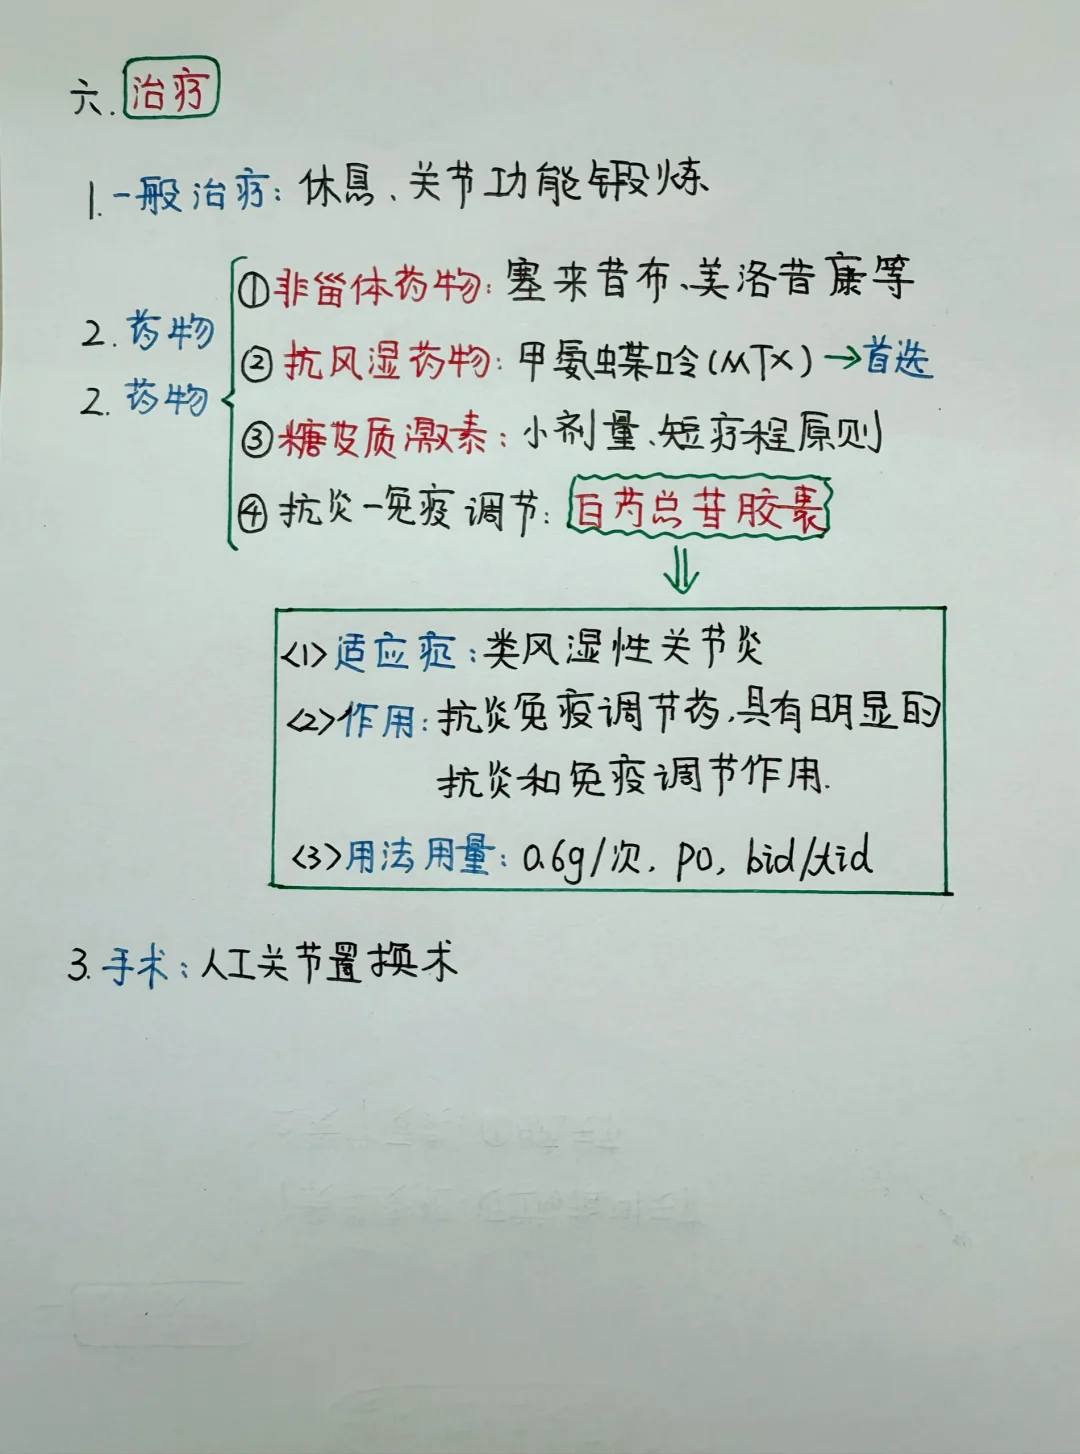 六. 治疗
1. 一般治疗: 休息、关节功能锻炼
①非甾体药物: 塞来昔布、美洛昔康等
2. 药物
②抗风湿药物: 甲氨蝶呤(MTX)→首选
2. 药物
③糖皮质激素: 小剂量、短疗程原则
④抗炎-免疫调节: 白芍总苷胶囊
<1>适应症: 类风湿性关节炎
<2>作用: 抗炎免疫调节药,具有明显的
抗炎和免疫调节作用.
<3>用法用量: 0.6g/次, po, bid/tid
3. 手术: 人工关节置换术